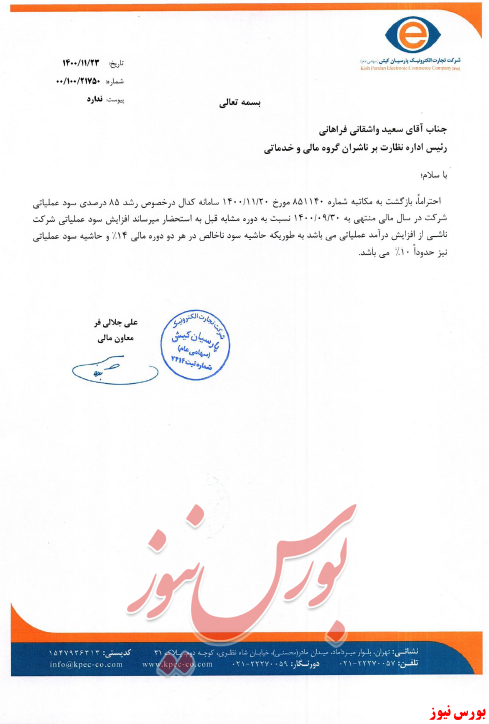 شرکت تجارت الکترونیک پارسیان کیش (سهامی عام)
Kish Parsian Electronic Commerce Company (PJS)
تاریخ: ۱۴۰۰/۱۱/۲۳
شماره: ۰۰/۱۰۰/۲۱۷۵۰
پیوست: ندارد
بسمه تعالی
جناب آقای سعید واشقانی فراهانی
رئیس اداره نظارت بر ناشران گروه مالی و خدماتی
با سلام؛
احتراماً، بازگشت به مکاتبه شماره ۸۵۱۱۴۰ مورخ ۱۴۰۰/۱۱/۲۰ سامانه کدال درخصوص رشد ۸۵ درصدی سود عملیاتی
شرکت در سال مالی منتهی به ۱۴۰۰/۰۹/۳۰ نسبت به دوره مشابه قبل به استحضار میرساند افزایش سود عملیاتی شرکت
ناشی از افزایش درآمد عملیاتی می باشد به طوریکه حاشیه سود ناخالص در هر دو دوره مالی ۱۴٪ و حاشیه سود عملیاتی
نیز حدوداً ۱۰٪ می باشد.
علی جلالی فر
معاون مالی
شرکت تجارت الکترونیک
پارسیان کیش
(سهامی عام)
شماره ثبت ۲۴۱۴
بورس نیوز
نشانی: تهران، بلوار میرداماد، میدان مادر(محسنی)، خیابان شاه نظری، کوچه دوم، پلاک ۳۱
کدپستی: ۱۵۴۷۹۳۶۳۱۳
تلفن: ۰۲۱-۲۲۲۷۰۰۵۷
دورنگار: ۰۲۱-۲۲۲۷۰۰۵۹
www.kpec-co.com
info@kpec-co.com
بورس نیوز